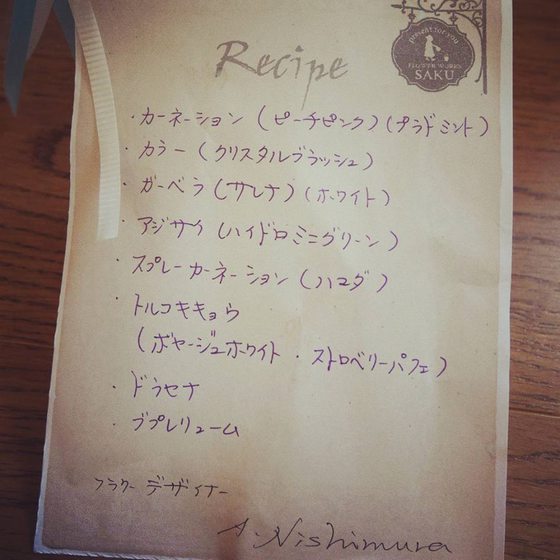 Recipe
present for you
FLOWER WORKS
SAKU
・カーネーション(ピーチピンク)(プラドミント)
・カラー(クリスタルブラッシュ)
・ガーベラ(サレナ)(ホワイト)
・アジサイ(ハイドロミニグリーン)
・スプレーカーネーション(ハコダ)
・トルコキキョウ
(ボヤージュホワイト・ストロベリーパフェ)
・ドラセナ
・ブプレリューム
フラワーデザイナー
A.Nishimura